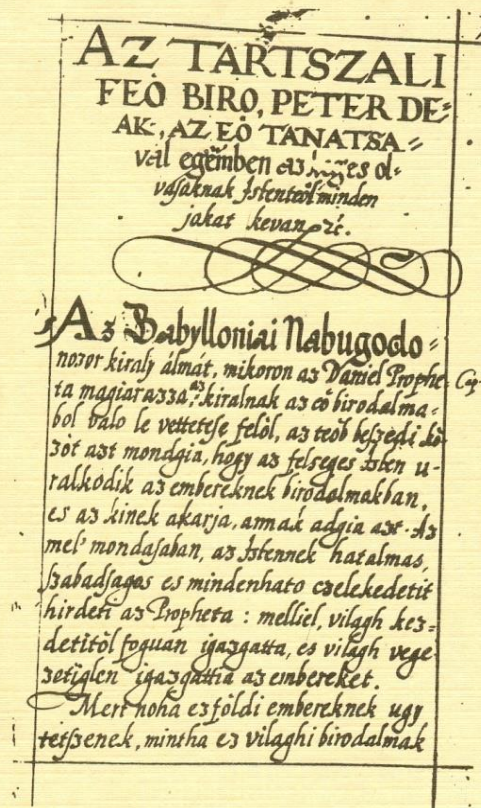 AZ TARTSZALI
FEÖ BIRO, PETER DE=
AK, AZ EÖ TANATSA=
val egëmben az es ol=
vasaknak Istentöl minden
jakat kevan
Az Babylloniai Nabugodo=
nozor kiraly álmát, mikoron az Daniel Prophe- Cap
ta magiarazza, az kiralnak az eö birodalma-
bol valo le vettetese felöl, az teöb beszedi kö-
zöt azt mondgia, hogy az felseges Isten u-
ralkodik az embereknek birodalmakban,
es az kinek akarja, annak adgia azt. Az
mel' mondasaban, az Istennek hatalmas,
szabadsagos es mindenhato czelekedetit
hirdeti az Propheta : melliel, vilagh kez=
detitöl foguan igazgatta, es vilagh vege
zetiglen igazgattia az embereket.
Mert noha ez földi embereknek ugy
tetszenek, mintha ez vilaghi birodalmak